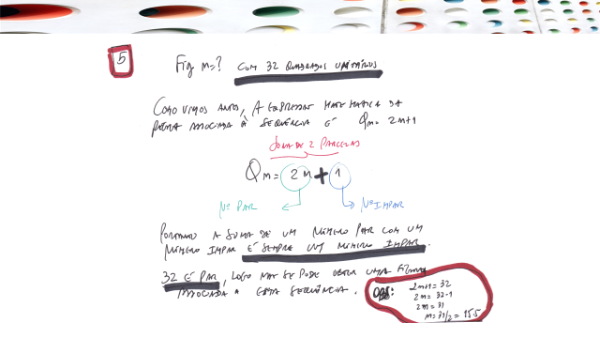 5
Fig m=? COM 32 QUADRADOS UNITÁRIOS
COMO VIMOS ANTES, A EXPRESSÃO MATEMÁTICA DA
FORMA ASSOCIADA À SEQUÊNCIA É Qm = 2m+1
SOMA DE 2 PARCELAS
Qm = 2m + 1
Nº PAR
Nº IMPAR
PORTANTO A SOMA DE UM NÚMERO PAR COM UM
NÚMERO IMPAR É SEMPRE UM NÚMERO IMPAR.
32 É PAR, LOGO NÃO SE PODE OBTER UMA FIGURA
ASSOCIADA A ESTA SEQUÊNCIA.
OBS: 2m+1 = 32
2m = 32-1
2m = 31
m = 31/2 = 15.5